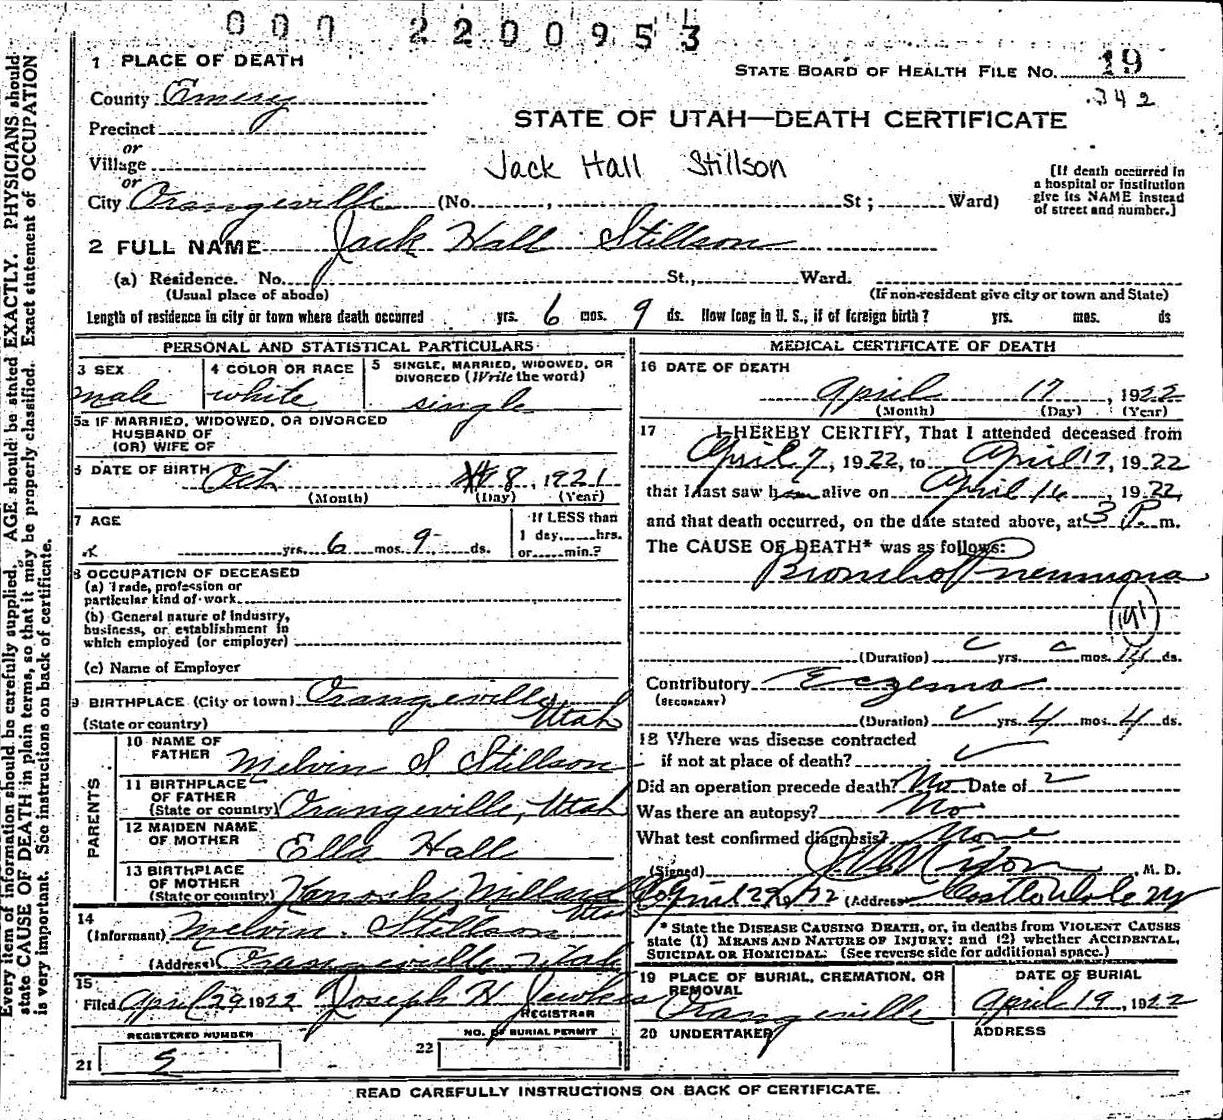 000 2200953
1 PLACE OF DEATH
STATE BOARD OF HEALTH FILE NO. 19
.342
County Emery
STATE OF UTAH—DEATH CERTIFICATE
Precinct
or
Village
Jack Hall Stillson
or
City Orangeville (No. , St ; Ward)
[If death occurred in a hospital or institution give its NAME instead of street and number.]
2 FULL NAME Jack Hall Stillson
(a) Residence. No. St., Ward.
(Usual place of abode) (If non-resident give city or town and State)
Length of residence in city or town where death occurred yrs. 6 mos. 9 ds. How long in U. S., if of foreign birth? yrs. mos. ds
PERSONAL AND STATISTICAL PARTICULARS
3 SEX male
4 COLOR OR RACE white
5 SINGLE, MARRIED, WIDOWED, OR DIVORCED (Write the word) single
5a IF MARRIED, WIDOWED, OR DIVORCED
HUSBAND OF
(OR) WIFE OF
6 DATE OF BIRTH Oct 8, 1921
(Month) (Day) (Year)
7 AGE
yrs. 6 mos. 9 ds.
If LESS than
1 day hrs.
or min.?
8 OCCUPATION OF DECEASED
(a) Trade, profession or
particular kind of work
(b) General nature of Industry,
business, or establishment in
which employed (or employer)
(c) Name of Employer
9 BIRTHPLACE (City or town) Orangeville
(State or country) Utah
PARENTS
10 NAME OF
FATHER Melvin S. Stillson
11 BIRTHPLACE
OF FATHER
(State or country) Orangeville, Utah
12 MAIDEN NAME
OF MOTHER Ella Hall
13 BIRTHPLACE
OF MOTHER
(State or country) Kanosh, Millard
Utah
14
(Informant) Melvin Stillson
(Address) Orangeville Utah
15
Filed April 29 1922 Joseph H. Jewkes
REGISTRAR
REGISTERED NUMBER
21 5
NO. OF BURIAL PERMIT
22
MEDICAL CERTIFICATE OF DEATH
16 DATE OF DEATH
April 17, 1922
(Month) (Day) (Year)
17 I HEREBY CERTIFY, That I attended deceased from
April 7, 1922, to April 17, 1922
that I last saw him alive on April 16, 1922,
and that death occurred, on the date stated above, at 3 P. m.
The CAUSE OF DEATH* was as follows:
Broncho Pneumonia
191
(Duration) yrs. mos. ds.
Contributory Eczema
(SECONDARY)
(Duration) yrs. 4 mos. 4 ds.
18 Where was disease contracted
if not at place of death?
Did an operation precede death? No Date of
Was there an autopsy? No
What test confirmed diagnosis? None
(Signed) M. D.
April 29, 22 (Address) Castle Dale
* State the DISEASE CAUSING DEATH, or, in deaths from VIOLENT CAUSES
state (1) MEANS AND NATURE OF INJURY; and (2) whether ACCIDENTAL,
SUICIDAL OR HOMICIDAL. (See reverse side for additional space.)
19 PLACE OF BURIAL, CREMATION, OR
REMOVAL
Orangeville
DATE OF BURIAL
April 19, 1922
20 UNDERTAKER
ADDRESS
READ CAREFULLY INSTRUCTIONS ON BACK OF CERTIFICATE.
Every item of information should be carefully supplied. AGE should be stated EXACTLY. PHYSICIANS should
state CAUSE OF DEATH in plain terms, so that it may be properly classified. Exact statement of OCCUPATION
is very important. See instructions on back of certificate.